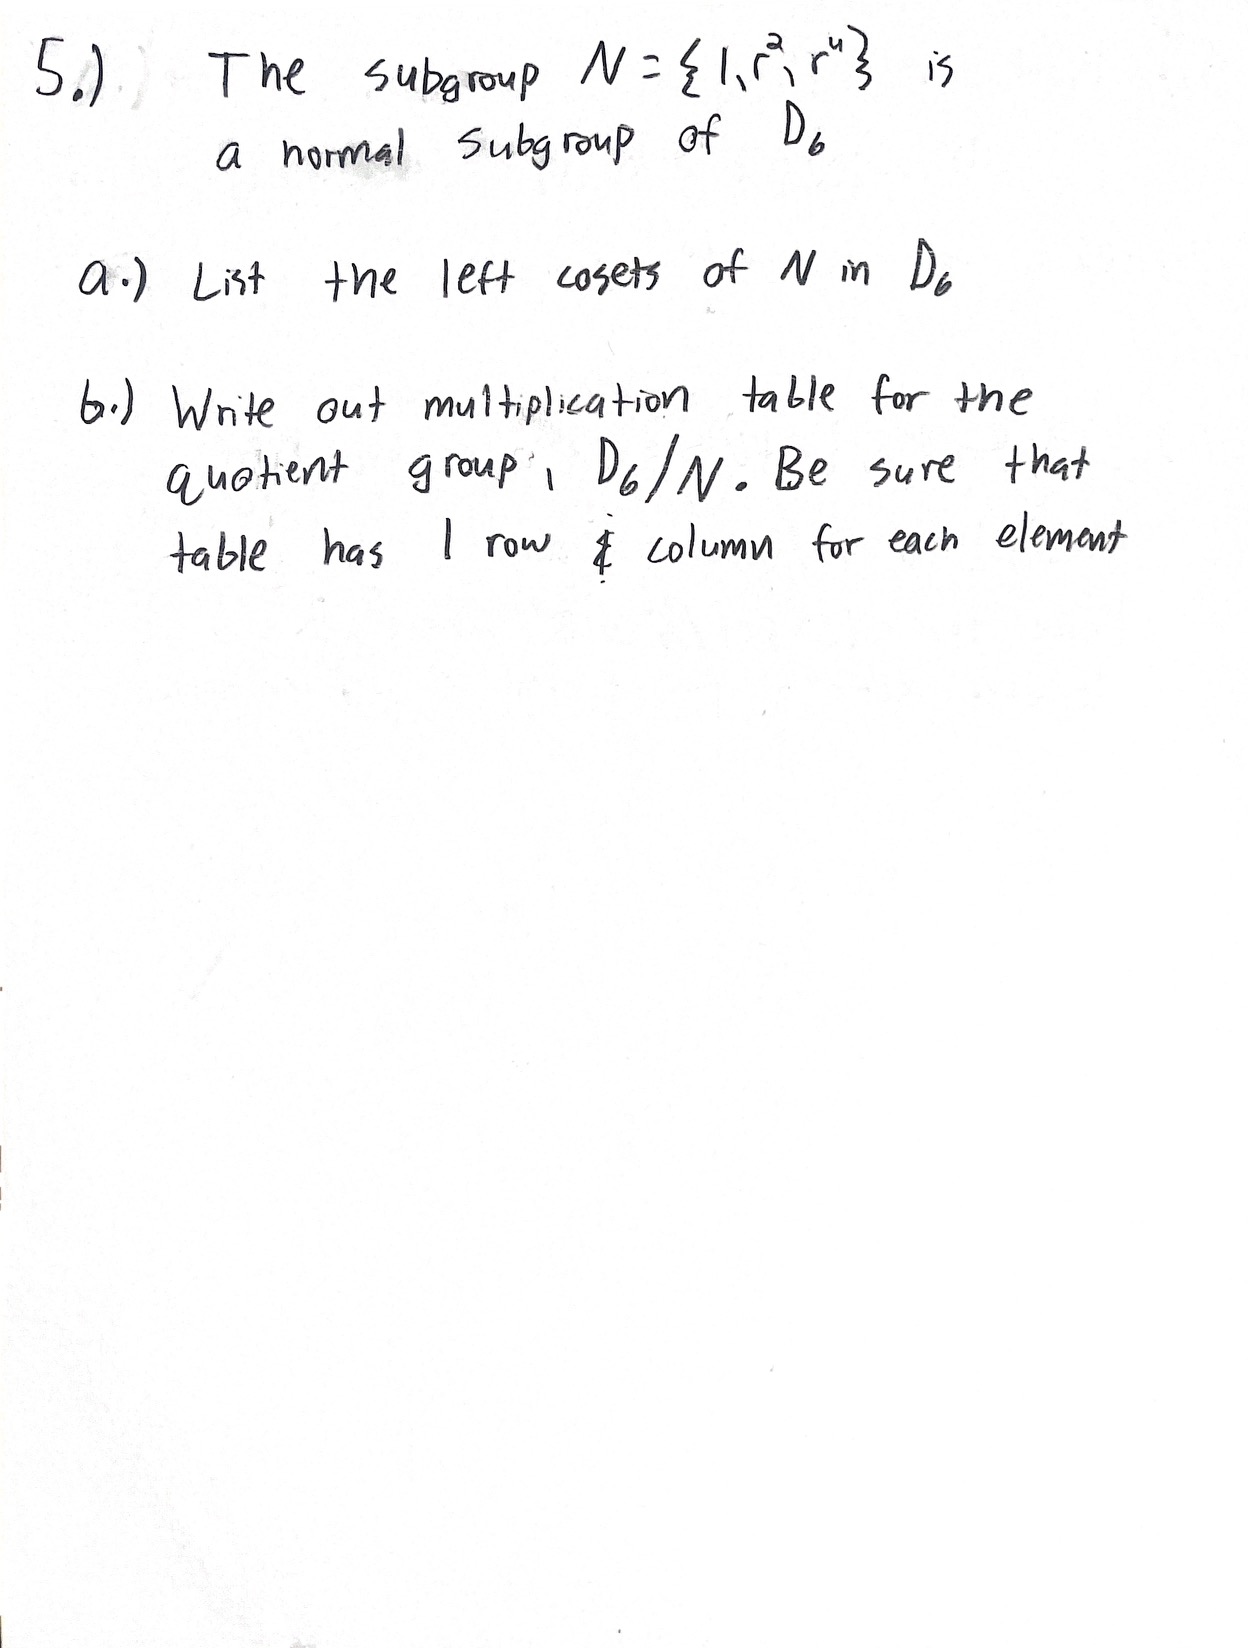 5.) The subgroup N = {1, r², r⁴} is
a normal subgroup of D₆
a.) List the left cosets of N in D₆
b.) Write out multiplication table for the
quotient group, D₆/N. Be sure that
table has 1 row & column for each element